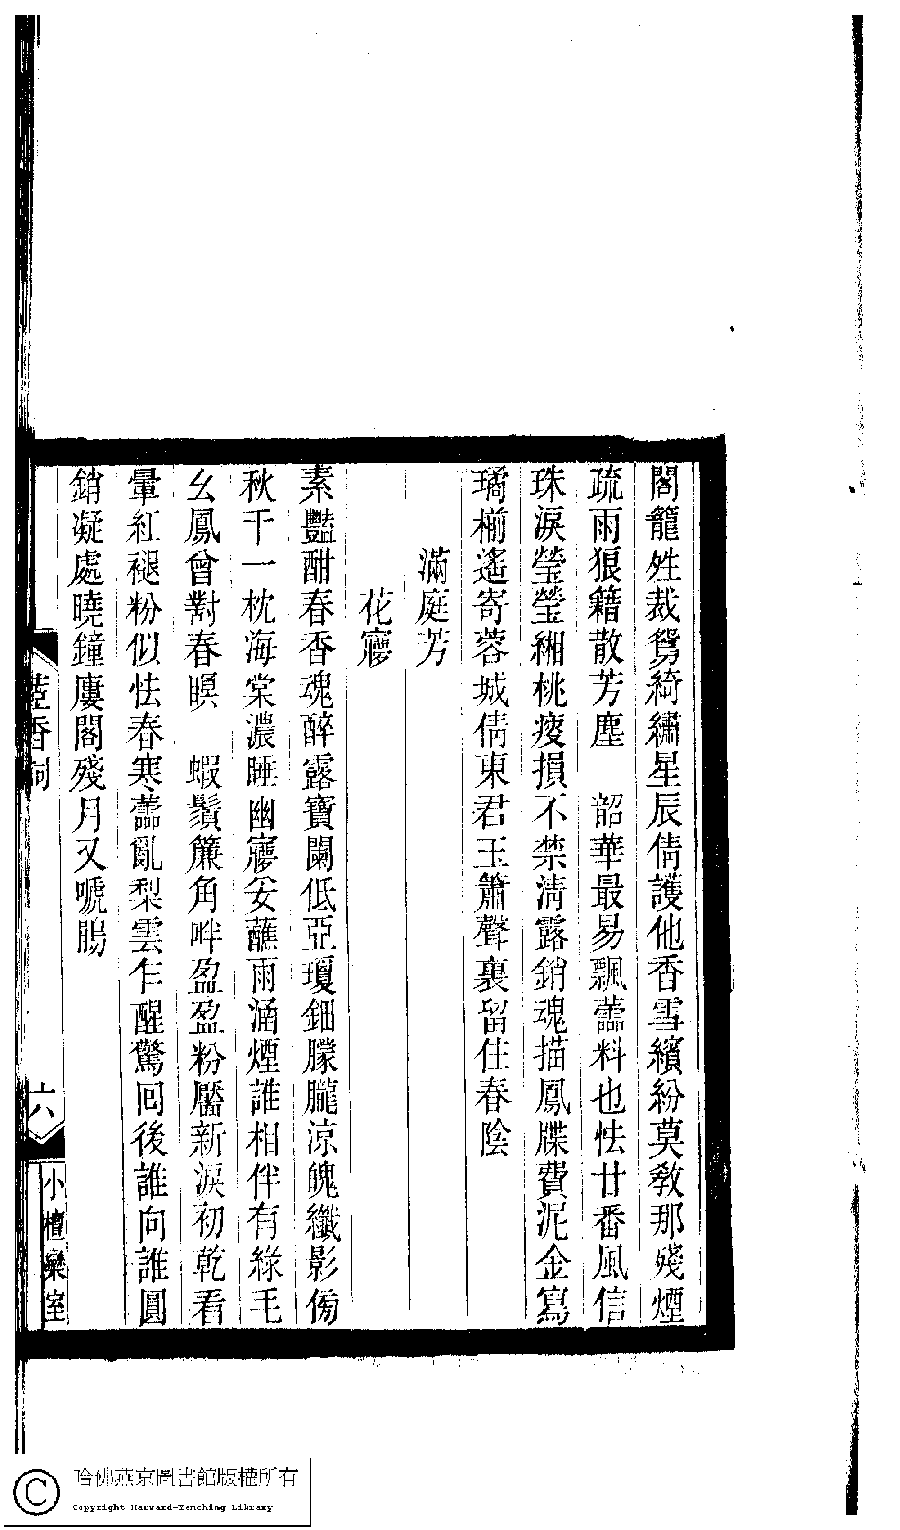 閣龍姓裁鴛綺繡星辰倩護他香雪繽紛莫敎那殘煙
疏雨狼籍散芳塵　韶華最易飄蘦料也怯廿番風信
珠淚瑩瑩緗桃瘦損不禁淸露銷魂描鳳牒費泥金寫
璚椾遙寄蓉城倩東君玉簫聲裏留住春陰
滿庭芳
花㝱
素豔酣春香魂醉露寶闌低亞瓊鈿朦朧涼魄纖影傍
秋千一枕海棠濃睡幽㝱安蘸雨涵煙誰相伴有綠毛
幺鳳曾對春瞑　蝦鬚簾角畔盈盈粉靨新淚初乾看
暈紅褪粉似怯春寒蘦亂梨雲乍醒驚回後誰向誰圓
銷凝處曉鐘廔閣殘月又唬鵑
香詞
六
小檀欒室
哈佛燕京圖書館版權所有
Copyright Harvard-Yenching Library